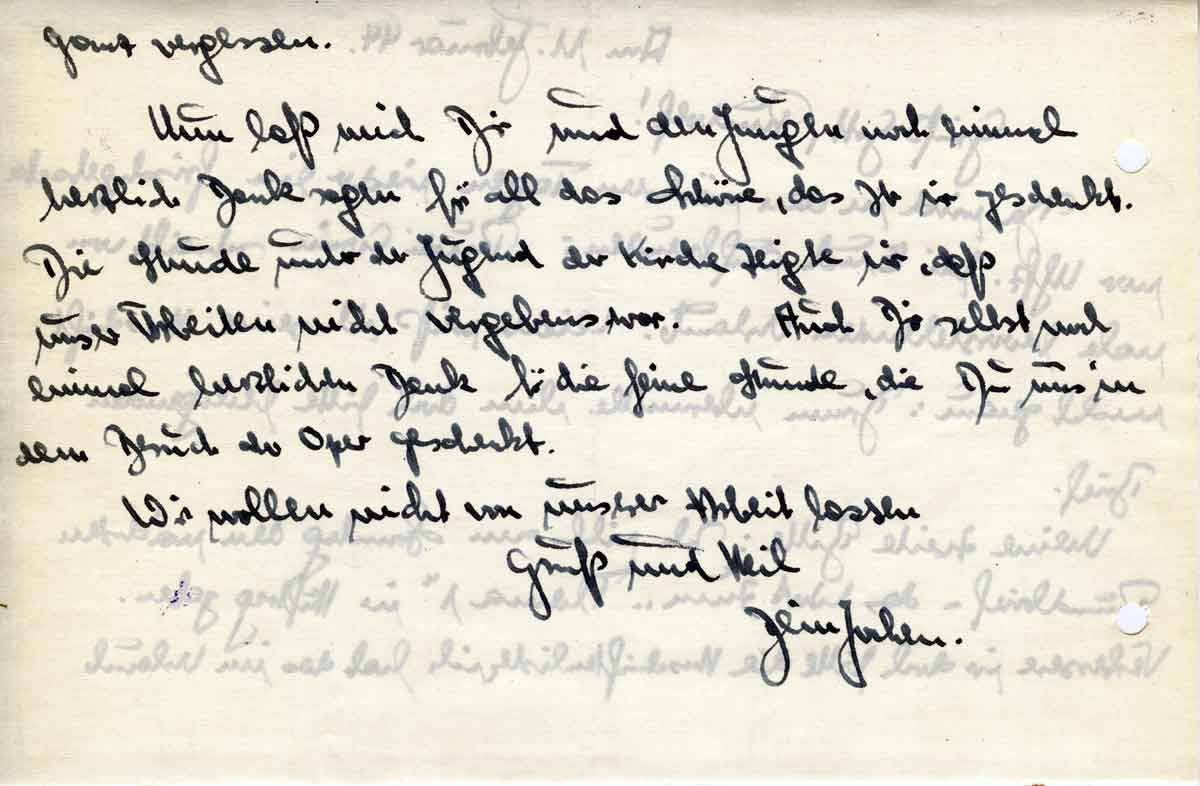 ganz vergessen.
Nun laß mich Dir und den Jungen noch einmal
herzlich Dank sagen für all das Schöne, das Ihr mir geschenkt.
Die Stunde unter der Jugend der Kirche zeigte mir, daß
unser Arbeiten nicht vergebens war. Auch Dir selbst noch
einmal herzlichen Dank für die feine Stunde, die Du uns in
dem Besuch der Oper geschenkt.
Wir wollen nicht von unserer Arbeit lassen
Gruß und Heil
Dein Jochen.